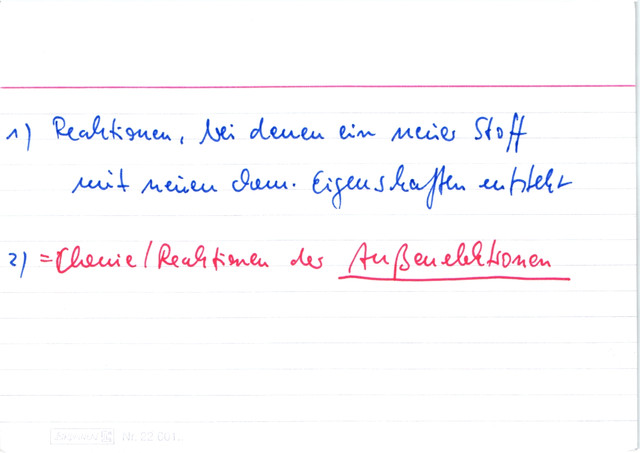 1) Reaktionen, bei denen ein neuer Stoff
mit neuen chem. Eigenschaften entsteht
2) = Chemie/Reaktionen der Außenelektronen